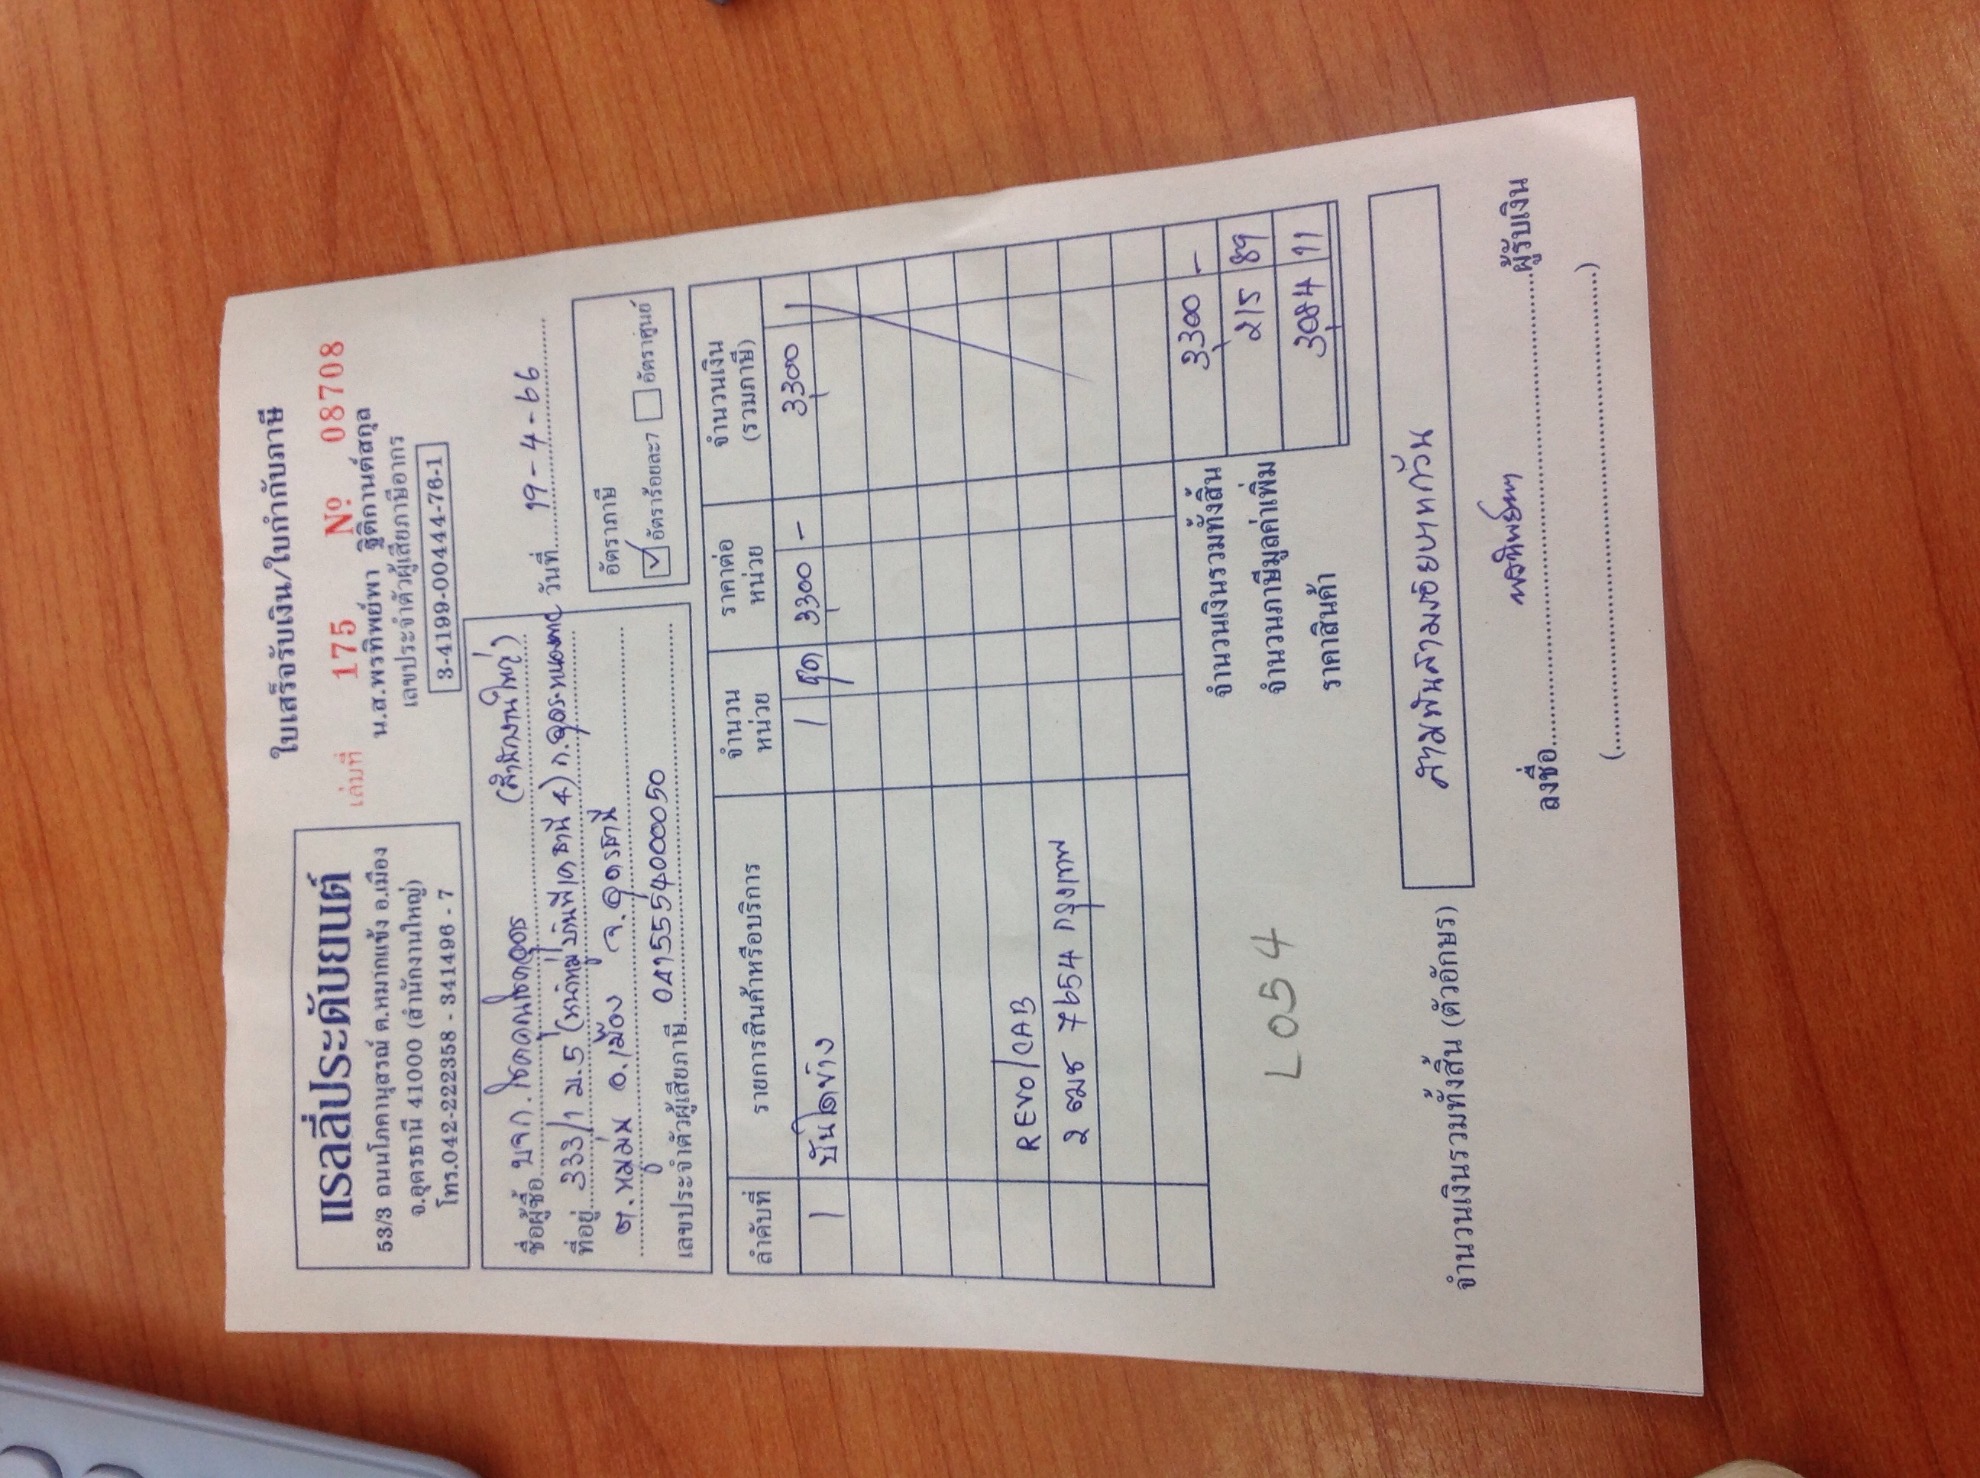 แรลลี่ประดับยนต์
53/3 ถนนโภคานุสรณ์ ต.หมากแข้ง อ.เมือง
จ.อุดรธานี 41000 (สำนักงานใหญ่)
โทร.042-222358 - 341496 - 7
ใบเสร็จรับเงิน/ใบกำกับภาษี
เล่มที่ 175 № 08708
น.ส.พรทิพย์พา ฐิติกานต์สกุล
เลขประจำตัวผู้เสียภาษีอากร
3-4199-00444-76-1
ชื่อผู้ซื้อ บจก. (สำนักงานใหญ่)
วันที่ 19-4-66
ที่อยู่ 333/1 ม.5 (หน้าหมู่บ้านพีเคธานี 4)
ต.หมูม่น อ.เมือง จ.อุดรธานี
เลขประจำตัวผู้เสียภาษี 0415554000050
อัตราภาษี
☑ อัตราร้อยละ7 ☐ อัตราศูนย์
ลำดับที่ รายการสินค้าหรือบริการ จำนวนหน่วย ราคาต่อหน่วย จำนวนเงิน (รวมภาษี)
1 บันไดข้าง 1 ชุด 3300 - 3300
REVO/CAB
2 ฒช 7654 กรุงเทพ
จำนวนเงินรวมทั้งสิ้น 3300 -
จำนวนภาษีมูลค่าเพิ่ม 215 89
ราคาสินค้า 3084 11
L054
จำนวนเงินรวมทั้งสิ้น (ตัวอักษร) สามพันสามร้อยบาทถ้วน
ลงชื่อ พรทิพย์พา ผู้รับเงิน